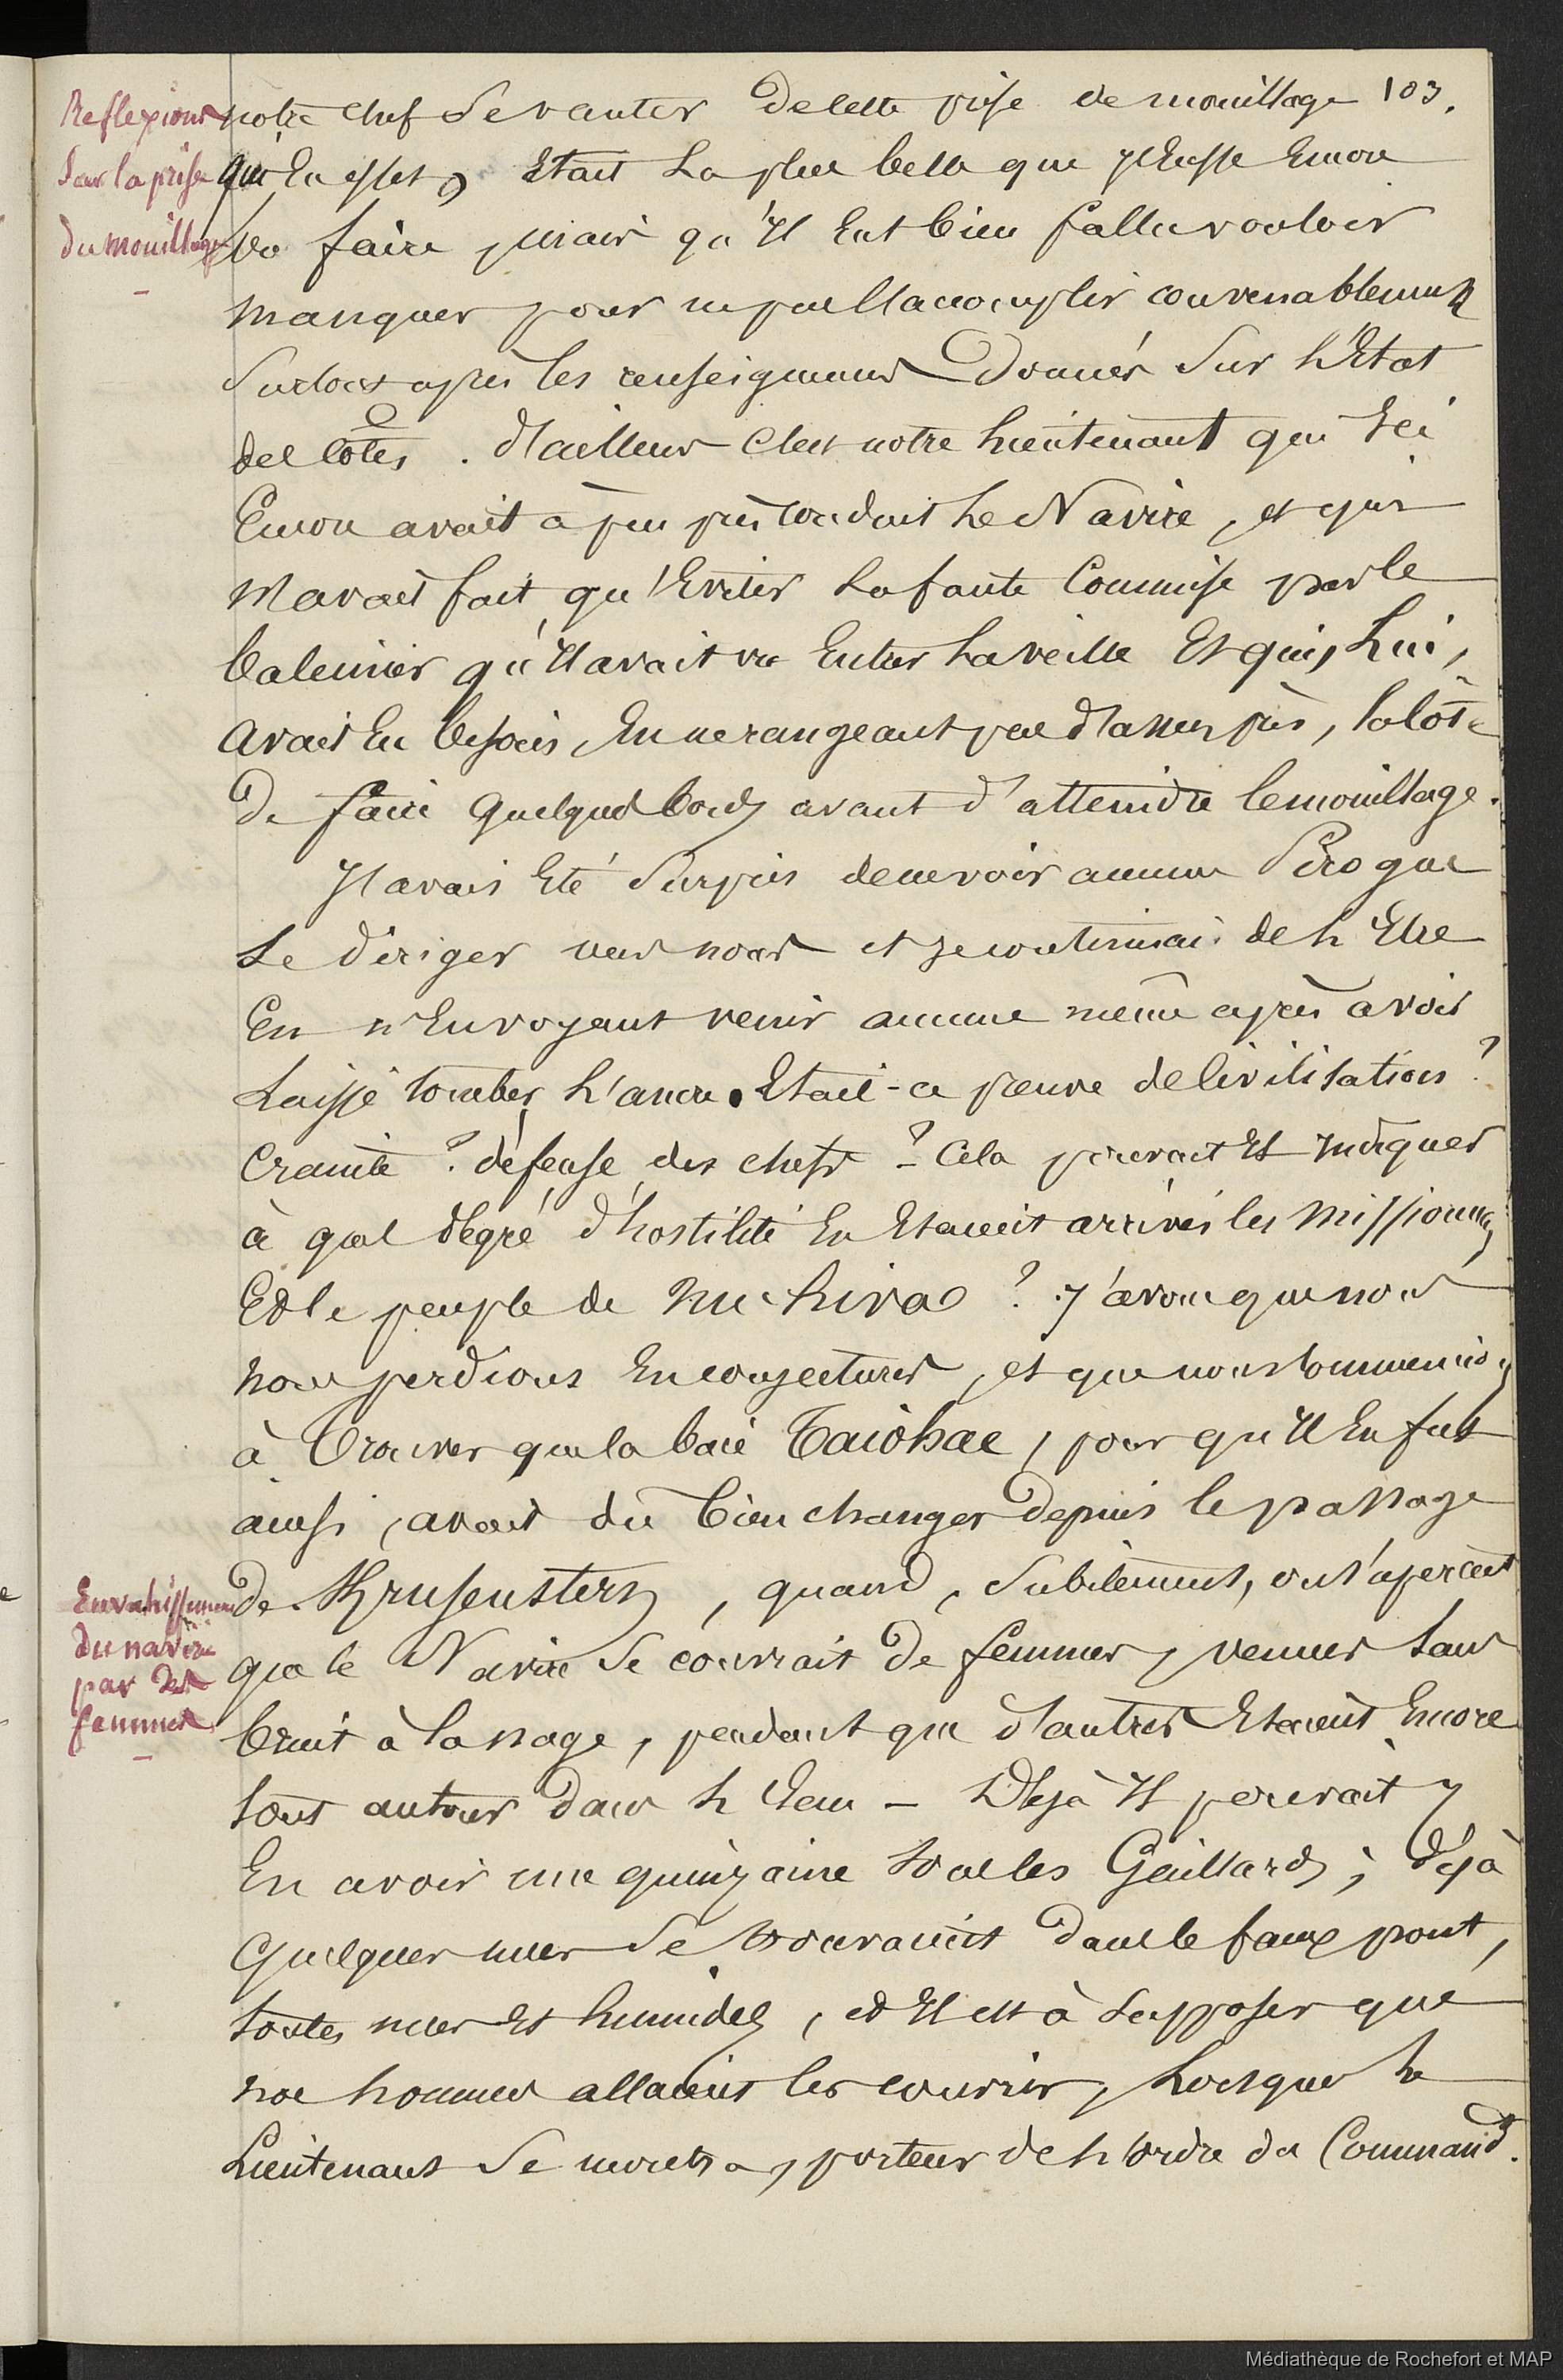 103.
Reflexions
sur la prise
du mouillage
notre chef se vanter de cette prise de mouillage
qui en effet, était la plus belle que j'eusse encore
vu faire, mais qu'il eut bien fallu vouloir
manquer pour ne pas l'accomplir convenablement
surtout après les renseignemens donnés sur l'état
des côtes. d'ailleurs c'est notre lieutenant qui ici
encore avait à peu près conduit le Navire, et qui
n'avait fait qu'éviter la faute commise par le
baleinier qu'il avait vu entrer la veille et qui, lui,
avait eu besoin, en ne rangeant pas d'assez près, la côte
de faire quelques bords avant d'atteindre le mouillage.
J'avais été surpris de ne voir aucune Pirogue
se diriger vers nous et je continuai de l'être
en n'en voyant venir aucune même après avoir
laissé tomber l'ancre. Etait-ce preuve de civilisation ?
crainte ? défense des chefs ? – Cela pouvait et indiquer
à quel degré d'hostilité en étaient arrivés les missionnes
et le peuple de Nuchiva ? j'avoue que nous
nous perdions en conjectures, et que nous commencions
à trouver que la baie Taiohae, pour qu'il en fut
ainsi, avait du bien changer depuis le passage
Envahissement
du navire
par des
femmes
de Krusenstern, quand, subitement, on s'aperçut
que le Navire se couvrait de femmes, venues sans
bruit à la nage, pendant que d'autres étaient encore
tout autour dans l'eau – Déjà il pouvait y
en avoir une quinzaine sur les Gaillards ; déjà
quelques unes se trouvaient dans le faux pont,
toutes nues et humides, et il est à supposer que
nos hommes allaient les couvrir, lorsque le
Lieutenant se montra, porteur de l'ordre du Command.t
Médiathèque de Rochefort et MAP